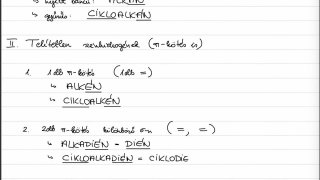 ↳ nyílt láncú: ALKÁN
↳ gyűrűs: CIKLOALKÁN
II. Telítetlen szénhidrogének (π-kötés is)
1. 1db π-kötés (1db =)
↳ ALKÉN
↳ CIKLOALKÉN
2. 2db π-kötés (=, =)
↳ ALKADIÉN = DIÉN
↳ CIKLOALKADIÉN = CIKLODIE